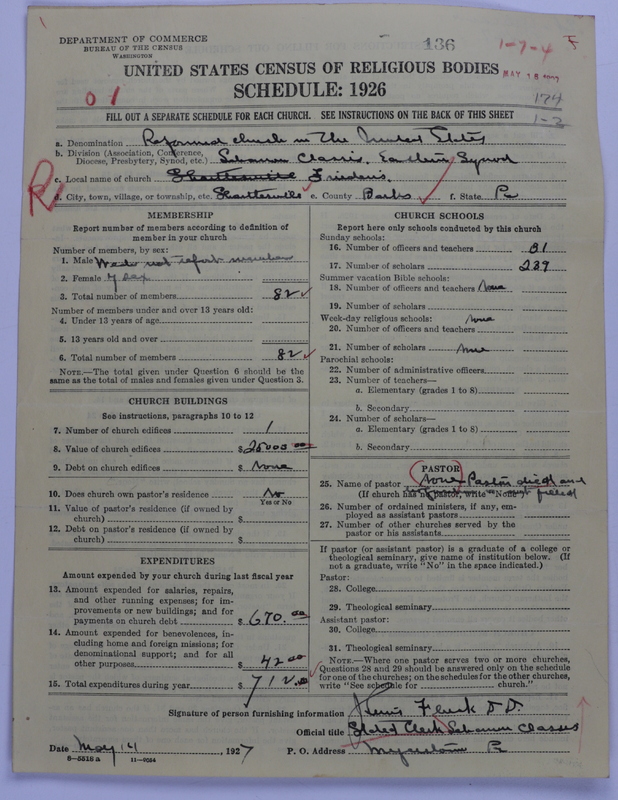 DEPARTMENT OF COMMERCE
BUREAU OF THE CENSUS
WASHINGTON
136
1-7-4
UNITED STATES CENSUS OF RELIGIOUS BODIES
MAY 18 1927
SCHEDULE: 1926
01
174
1-2
FILL OUT A SEPARATE SCHEDULE FOR EACH CHURCH. SEE INSTRUCTIONS ON THE BACK OF THIS SHEET
a. Denomination Reformed Church in The United States
b. Division (Association, Conference,
Diocese, Presbytery, Synod, etc.) Lebanon Classis, Eastern Synod
c. Local name of church Shartlesville Friedens.
R
d. City, town, village, or township, etc. Shartlesville e. County Berks f. State Pa
MEMBERSHIP
Report number of members according to definition of
member in your church
Number of members, by sex:
1. Male We do not report number
2. Female by sex
3. Total number of members 82
Number of members under and over 13 years old:
4. Under 13 years of age
5. 13 years old and over
6. Total number of members 82
NOTE.—The total given under Question 6 should be the
same as the total of males and females given under Question 3.
CHURCH BUILDINGS
See instructions, paragraphs 10 to 12
7. Number of church edifices 1
8. Value of church edifices $ 25000.00
9. Debt on church edifices $ None
10. Does church own pastor's residence No
Yes or No
11. Value of pastor's residence (if owned by
church) $
12. Debt on pastor's residence (if owned by
church) $
EXPENDITURES
Amount expended by your church during last fiscal year
13. Amount expended for salaries, repairs,
and other running expenses; for im-
provements or new buildings; and for
payments on church debt $ 670.00
14. Amount expended for benevolences, in-
cluding home and foreign missions; for
denominational support; and for all
other purposes $ 42 00
15. Total expenditures during year $ 712.00
CHURCH SCHOOLS
Report here only schools conducted by this church
Sunday schools:
16. Number of officers and teachers 31
17. Number of scholars 239
Summer vacation Bible schools:
18. Number of officers and teachers None
19. Number of scholars
Week-day religious schools: None
20. Number of officers and teachers
21. Number of scholars None
Parochial schools:
22. Number of administrative officers
23. Number of teachers—
a. Elementary (grades 1 to 8)
b. Secondary
24. Number of scholars—
a. Elementary (grades 1 to 8)
b. Secondary
PASTOR
25. Name of pastor None Pastor died and
(If church has no pastor, write "None") not filled
26. Number of ordained ministers, if any, em-
ployed as assistant pastors
27. Number of other churches served by the
pastor or his assistants
If pastor (or assistant pastor) is a graduate of a college or
theological seminary, give name of institution below. (If
not a graduate, write "No" in the space indicated.)
Pastor:
28. College
29. Theological seminary
Assistant pastor:
30. College
31. Theological seminary
NOTE.—Where one pastor serves two or more churches,
Questions 28 and 29 should be answered only on the schedule
for one of the churches; on the schedules for the other churches,
write "See schedule for church."
Signature of person furnishing information Fluck D.D.
Official title Stated Clerk Lebanon Classis
Date May 14, 1927 P. O. Address Myerstown Pa
8-5518 a 11-9054